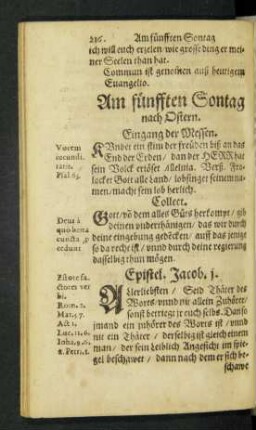 216. Am fünfften Sontag
ich will euch erzelen/ wie grosse ding er mei-
ner Seelen than hat.
Commun ist genomen auß heutigem
Euangelio.
Am fünfften Sontag
nach Ostern.
Eingang der Messen.
Vocem
iucundi-
tatis.
Psal. 65.
Kündet ein stim der freüden biß an das
End der Erden/ dan der HERR hat
sein Volck erlöset Alleluia. Verß. Fro-
locket Gott alle Land/ lobsinget seinem na-
men/ macht sein lob herlich.
Collect.
Deus à
quo bona
cuncta p̱-
cedunt
Gott/ võ dem alles Gůts herkompt/ gib
deinen vnderthänigen/ das wir durch
deine eingebung gedёcken/ auff das jenge
so da recht ist/ vnnd durch deine regierung
dasselbig thun mögen.
Epistel. Jacob. j.
Estote fa-
ctores ver
bi.
Rom. 2.
Mat. 5.7.
Act 1.
Luc. 11.6.
2. Petri. 1.
Allerliebsten/ Seid Thäter des
Worts/ vnnd nit allein Zuhörer/
sonst betrieget jr euch selbs. Dan so
jmand ein zuhörer des Worts ist/ vnnd
nit ein Thäter/ derselbig ist gleich einem
man/ der sein leiblich Angesicht im spie-
gel beschawet/ dann nach dem er sich be-
schawe